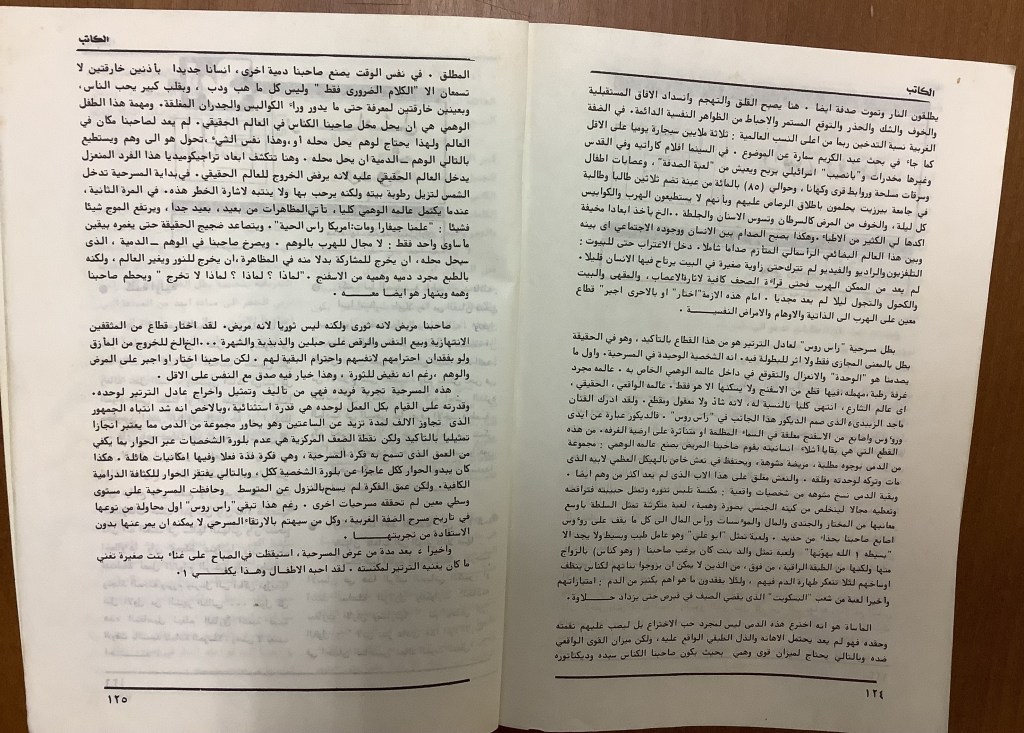 الكاتب
يطلقون النار وتموت صدفة ايضا . هنا يصبح القلق والتهجم وانسداد الافاق المستقبلية
والخوف والشك والحذر والتوقع المستمر والاحباط من الظواهر النفسية الدائمة. في الضفة
الغربية نسبة التدخين ربما من اعلى النسب العالمية : ثلاثة ملايين سيجارة يوميا على الاقل
كما جاء في بحث عبد الكريم سمارة عن الموضوع . في السينما افلام كاراتيه وفي القدس
وغيرها مخدرات و"يانصيب" اسرائيلي يربح ويعيش من "لعبة الصدفة" ، وعصابات اطفال
وسرقات مسلحة وروابط قرى وكهانا ، وحوالي (٨٥) بالمائة من عينة تضم ثلاثين طالبا وطالبة
في جامعة بيرزيت يحلمون باطلاق الرصاص عليهم وبأنهم لا يستطيعون الهرب والكوابيس
كل ليلة ، والخوف من المرض كالسرطان وتسوس الاسنان والجلطة . الخ يأخذ ابعادا مخيفة
اكدها لي الكثير من الاطباء .وهكذا يصبح الصدام بين الانسان ووجوده الاجتماعي اي بينه
وبين هذا العالم البضائعي الرأسمالي المتأزم صداما شاملا . دخل الاغتراب حتى للبيوت :
التلفزيون والراديو والفيديو لم تترك حتى زاوية صغيرة في البيت يرتاح فيها الانسان قليلا .
لم يعد من الممكن الهرب فحتى قراءة الصحف كافية لاثارة الاعصاب ، والمقهى والبيت
والكحول والتجول ليلا لم يعد مجديا . امام هذه الازمة "اختار" او بالاحرى اجبر" قطاع
معين على الهرب الى الذاتية والاوهام والامراض النفسيـــة .
بطل مسرحية "راس روس" لعادل الترتير هو من هذا القطاع بالتأكيد ، وهو في الحقيقة
بطل بالمعنى المجازي فقط ولا اثر للبطولة فيه . انه الشخصية الوحيدة في المسرحية. واول ما
يصدمنا هو "الوحدة" والانعزال والتقوقع في داخل عالمه الوهمي الخاص به . عالمه مجرد
غرفة رطبة ،مهمله ،فيها قطع من الاسفنج ولا يسكنها الا هو فقط. عالمه الواقعي ، الحقيقي ،
اي عالم الشارع ، انتهى كليا بالنسبة له، لانه شاذ ولا معقول وبقطع . ولقد ادرك الفنان
ماجد الزبيدي الذي صمم الديكور هذا الجانب في "راس روس" . فالديكور عبارة عن ايدي
وروؤس واصابع من الاسفنج معلقة في السماء المظلمة او متناثرة على ارضية الغرفة. من هذه
القطع التي هي بقايا اشلاء انسانيته يقوم صاحبنا المريض بصنع عالمه الوهمي : مجموعة
من الدمى بوجوه مطلية ، مريضة مشوهة ، ويحتفظ في نعش خاص بالهيكل العظمي لابيه الذي
مات وتركه لوحدته وقلقه . والنعش مغلق على هذا الاب الذي لم يعد اكثر من وهم ايضا .
وبقية الدمى نسخ مشوهة من شخصيات واقعية : مكنسة تلبس تنوره وتمثل حبيبته فتراقصه
وتعطيه مجالا ليتخلص من كبته الجنسي بصورة وهمية، لعبه متكرشة تمثل السلطة باوسع
معانيها من المختار والجندي والمال والمؤسسات وراس المال الى كل ما يقف على روؤس
اصابع صاحبنا بحذاء من حديد . ولعبة تمثل "ابو علي" وهو عامل طيب وبسيط ولا يجد الا
"بسيطه ! الله يهونها" ولعبه تمثل والد بنت كان يرغب صاحبنا ( وهو كناس) بالزواج
منها ولكنها من الطبقة الراقية ، من فوق، من الذين لا يمكن ان يزوجوا بناتهم لكناس ينظف
اوساخهم لئلا تتعكر طهارة الدم فيهم ، ولئلا يفقدون ما هو اهم بكثير من الدم : امتيازاتهم
واخيرا لعبة من شعب "البسكويت" الذي يقضي الصيف في قبرص حتى يزداد حـــلاوة .
المأساة هو انه اخترع هذه الدمى ليس لمجرد حب الاختراع بل ليصب عليهم نقمته
وحقده فهو لم يعد يحتمل الاهانه والذل الطبقي الواقع عليه، ولكن ميزان القوى الواقعي
ضده وبالتالي يحتاج لميزان قوى وهمي بحيث يكون صاحبنا الكناس سيده وديكتاتوره
١٢٤
الكاتب
المطلق . في نفس الوقت يصنع صاحبنا دمية اخرى، انسانا جديدا بأذنين خارقتين لا
تسمعان الا "الكلام الضروري فقط " وليس كل ما هب ودب ، وبقلب كبير يحب الناس،
وبعينين خارقتين لمعرفة حتى ما يدور وراء الكواليس والجدران المغلقة. ومهمة هذا الطفل
الوهمي هي ان يحل محل صاحبنا الكناس في العالم الحقيقي . لم يعد لصاحبنا مكان في
العالم ولهذا يحتاج لوهم يحل محله أو،وهذا نفس الشيء،تحول هو الى وهم ويستطيع
بالتالي الوهم ــ الدمية ان يحل محله . وهنا تتكشف ابعاد تراجيكوميديا هذا الفرد المنعزل
يدخل العالم الحقيقي عليه لانه يرفض الخروج للعالم الحقيقي . في بداية المسرحية تدخل
الشمس لتزيل رطوبة بيته ولكنه يرحب بها ولا ينتبه لاشارة الخطر هذه. في المرة الثانية ،
عندما يكتمل عالمه الوهمي كليا ، تأتي المظاهرات من بعيد ، بعيد جدا، ويرتفع الموج شيئا
فشيئا : "علمنا جيفارا ومات:امريكا راس الحية" . ويتصاعد ضجيج الحقيقة حتى يغمره بيقين
مأساوي واحد فقط : لا مجال للهرب بالوهم . ويصرخ صاحبنا في الوهم ــ الدمية ، الذي
سيحل محله، ان يخرج للمشاركة بدلا منه في المظاهرة ،ان يخرج للنور ويغير العالم ، ولكنه
بالطبع مجرد دميه وهميه من الاسفنج ."لماذا ؟ لماذا ؟ لماذا لا تخرج " ويحطم صاحبنا
وهمه وينهار هو ايضا معـــه .
صاحبنا مريض لانه ثوري ولكنه ليس ثوريا لانه مريض. لقد اختار قطاع من المثقفين
الانتهازية وبيع النفس والرقص على حبلين والذبذبة والشهرة ...الخ الخ للخروج من المأزق
ولو بفقدان احترامهم لانفسهم واحترام البقية لهم . لكن صاحبنا اختار او اجبر على المرض
والوهم ،رغم انه نقيض للثورة ، وهذا خيار فيه صدق مع النفس على الاقل .
هذه المسرحية تجربة فريده فهي من تأليف وتمثيل واخراج عادل الترتير لوحده.
وقدرته على القيام بكل العمل لوحده هي قدرة استثنائية،وبالاخص انه شد انتباه الجمهور
الذي تجاوز الالف لمدة تزيد عن الساعتين وهو يحاور مجموعة من الدمى مما يعتبر انجازا
تمثيليا بالتأكيد ولكن نقطة الضعف المركزية هي عدم بلورة الشخصيات عبر الحوار بما يكفي
من العمق الذي تسمح به فكرة المسرحية ، وهي فكرة فذة فعلا وفيها امكانيات هائلة . هكذا
كان يبدو الحوار ككل عاجزا عن بلورة الشخصية ككل ، وبالتالي يفتقر الحوار للكثافة الدرامية
الكافية. ولكن عمق الفكرة لم يسمح بالنزول عن المتوسط وحافظت المسرحية على مستوى
وسطي معين لم تحققه مسرحيات اخرى . رغم هذا تبقي "راس روس" اول محاولة من نوعها
في تاريخ مسرح الضفة الغربية ، وكل من سيهتم بالارتقاء المسرحي لا يمكنه ان يمر عنها بدون
الاستفادة من تجربتهــــا .
واخيرا ، بعد مدة من عرض المسرحية ، استيقظت في الصباح على غناء بنت صغيرة تغني
ما كان يغنيه الترتير لمكنسته . لقد احبه الاطفال وهذا يكفــي ١.
١٢٥